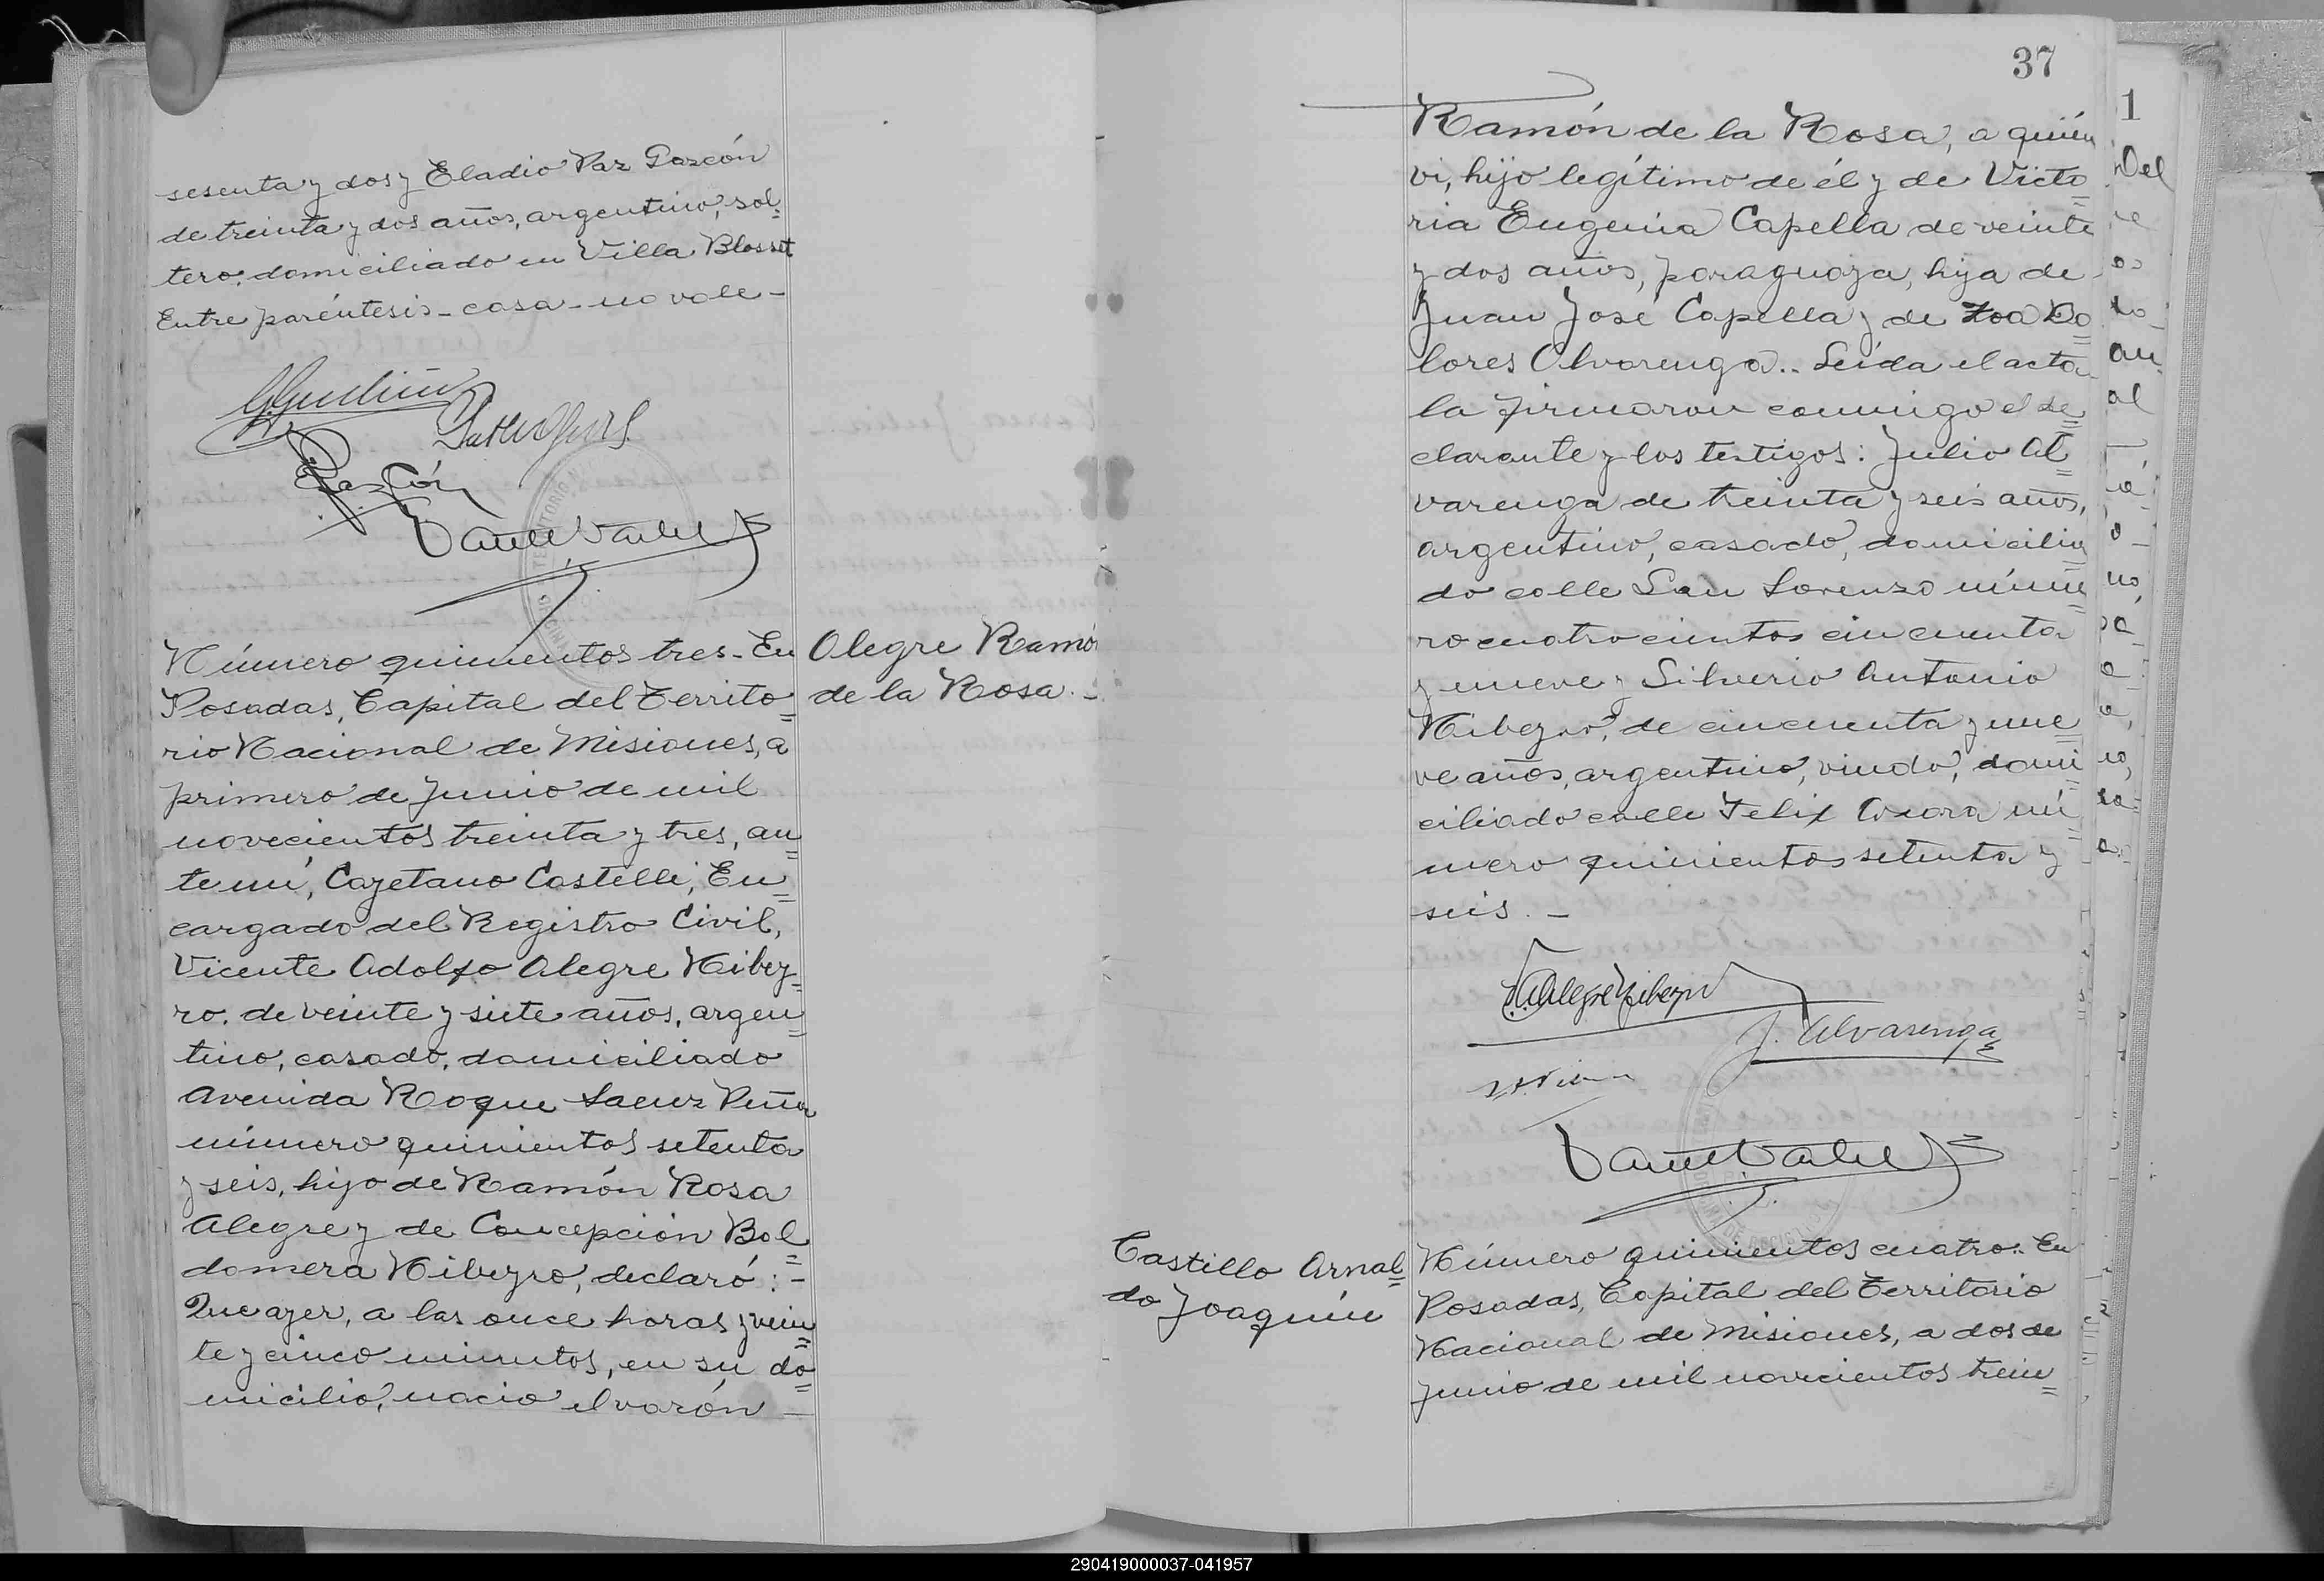 sesenta y dos y Eladio Paz Garcón
de treinta y dos años, argentino, sol=
tero, domiciliado en Villa Blosset
Entre paréntesis - casa - no vale -
Número quinientos tres - En
Posadas, Capital del Territo=
rio Nacional de Misiones, a
primero de Junio de mil
novecientos treinta y tres, an=
te mí, Cayetano Castelli, En=
cargado del Registro Civil,
Vicente Adolfo Alegre Nibey=
ro, de veinte y siete años, argen=
tino, casado, domiciliado
Avenida Roque Saenz Peña
número quinientos setenta
y seis, hijo de Ramón Rosa
Alegre y de Concepción Bal=
domera Nibeyro, declaró: -
Que ayer, a las once horas y vein=
te y cinco minutos, en su do=
micilio, nació el varón -
Alegre Ramón
de la Rosa. -
37
Ramón de la Rosa, a quién
vi, hijo legítimo de él y de Victo=
ria Eugenia Capella de veinte
y dos años, paraguaya, hija de
Juan José Capella y de Do=
lores Alvarenga.. Leída el acta
la firmaron conmigo el de=
clarante y los testigos: Julio Al=
varenga de treinta y seis años,
argentino, casado, domicilia=
do calle San Lorenzo núme=
ro cuatrocientos cincuenta
y nueve y Silverio Antonio
Nibeyro, de cincuenta y nue=
ve años, argentino, viudo, domi=
ciliado calle Felix Azara nú=
mero quinientos setenta y
seis. -
J. Alvarenga
Castillo Arnal=
do Joaquín
Número quinientos cuatro.. En
Posadas, Capital del Territorio
Nacional de Misiones, a dos de
Junio de mil novecientos trein=
1
Del
290419000037-041957